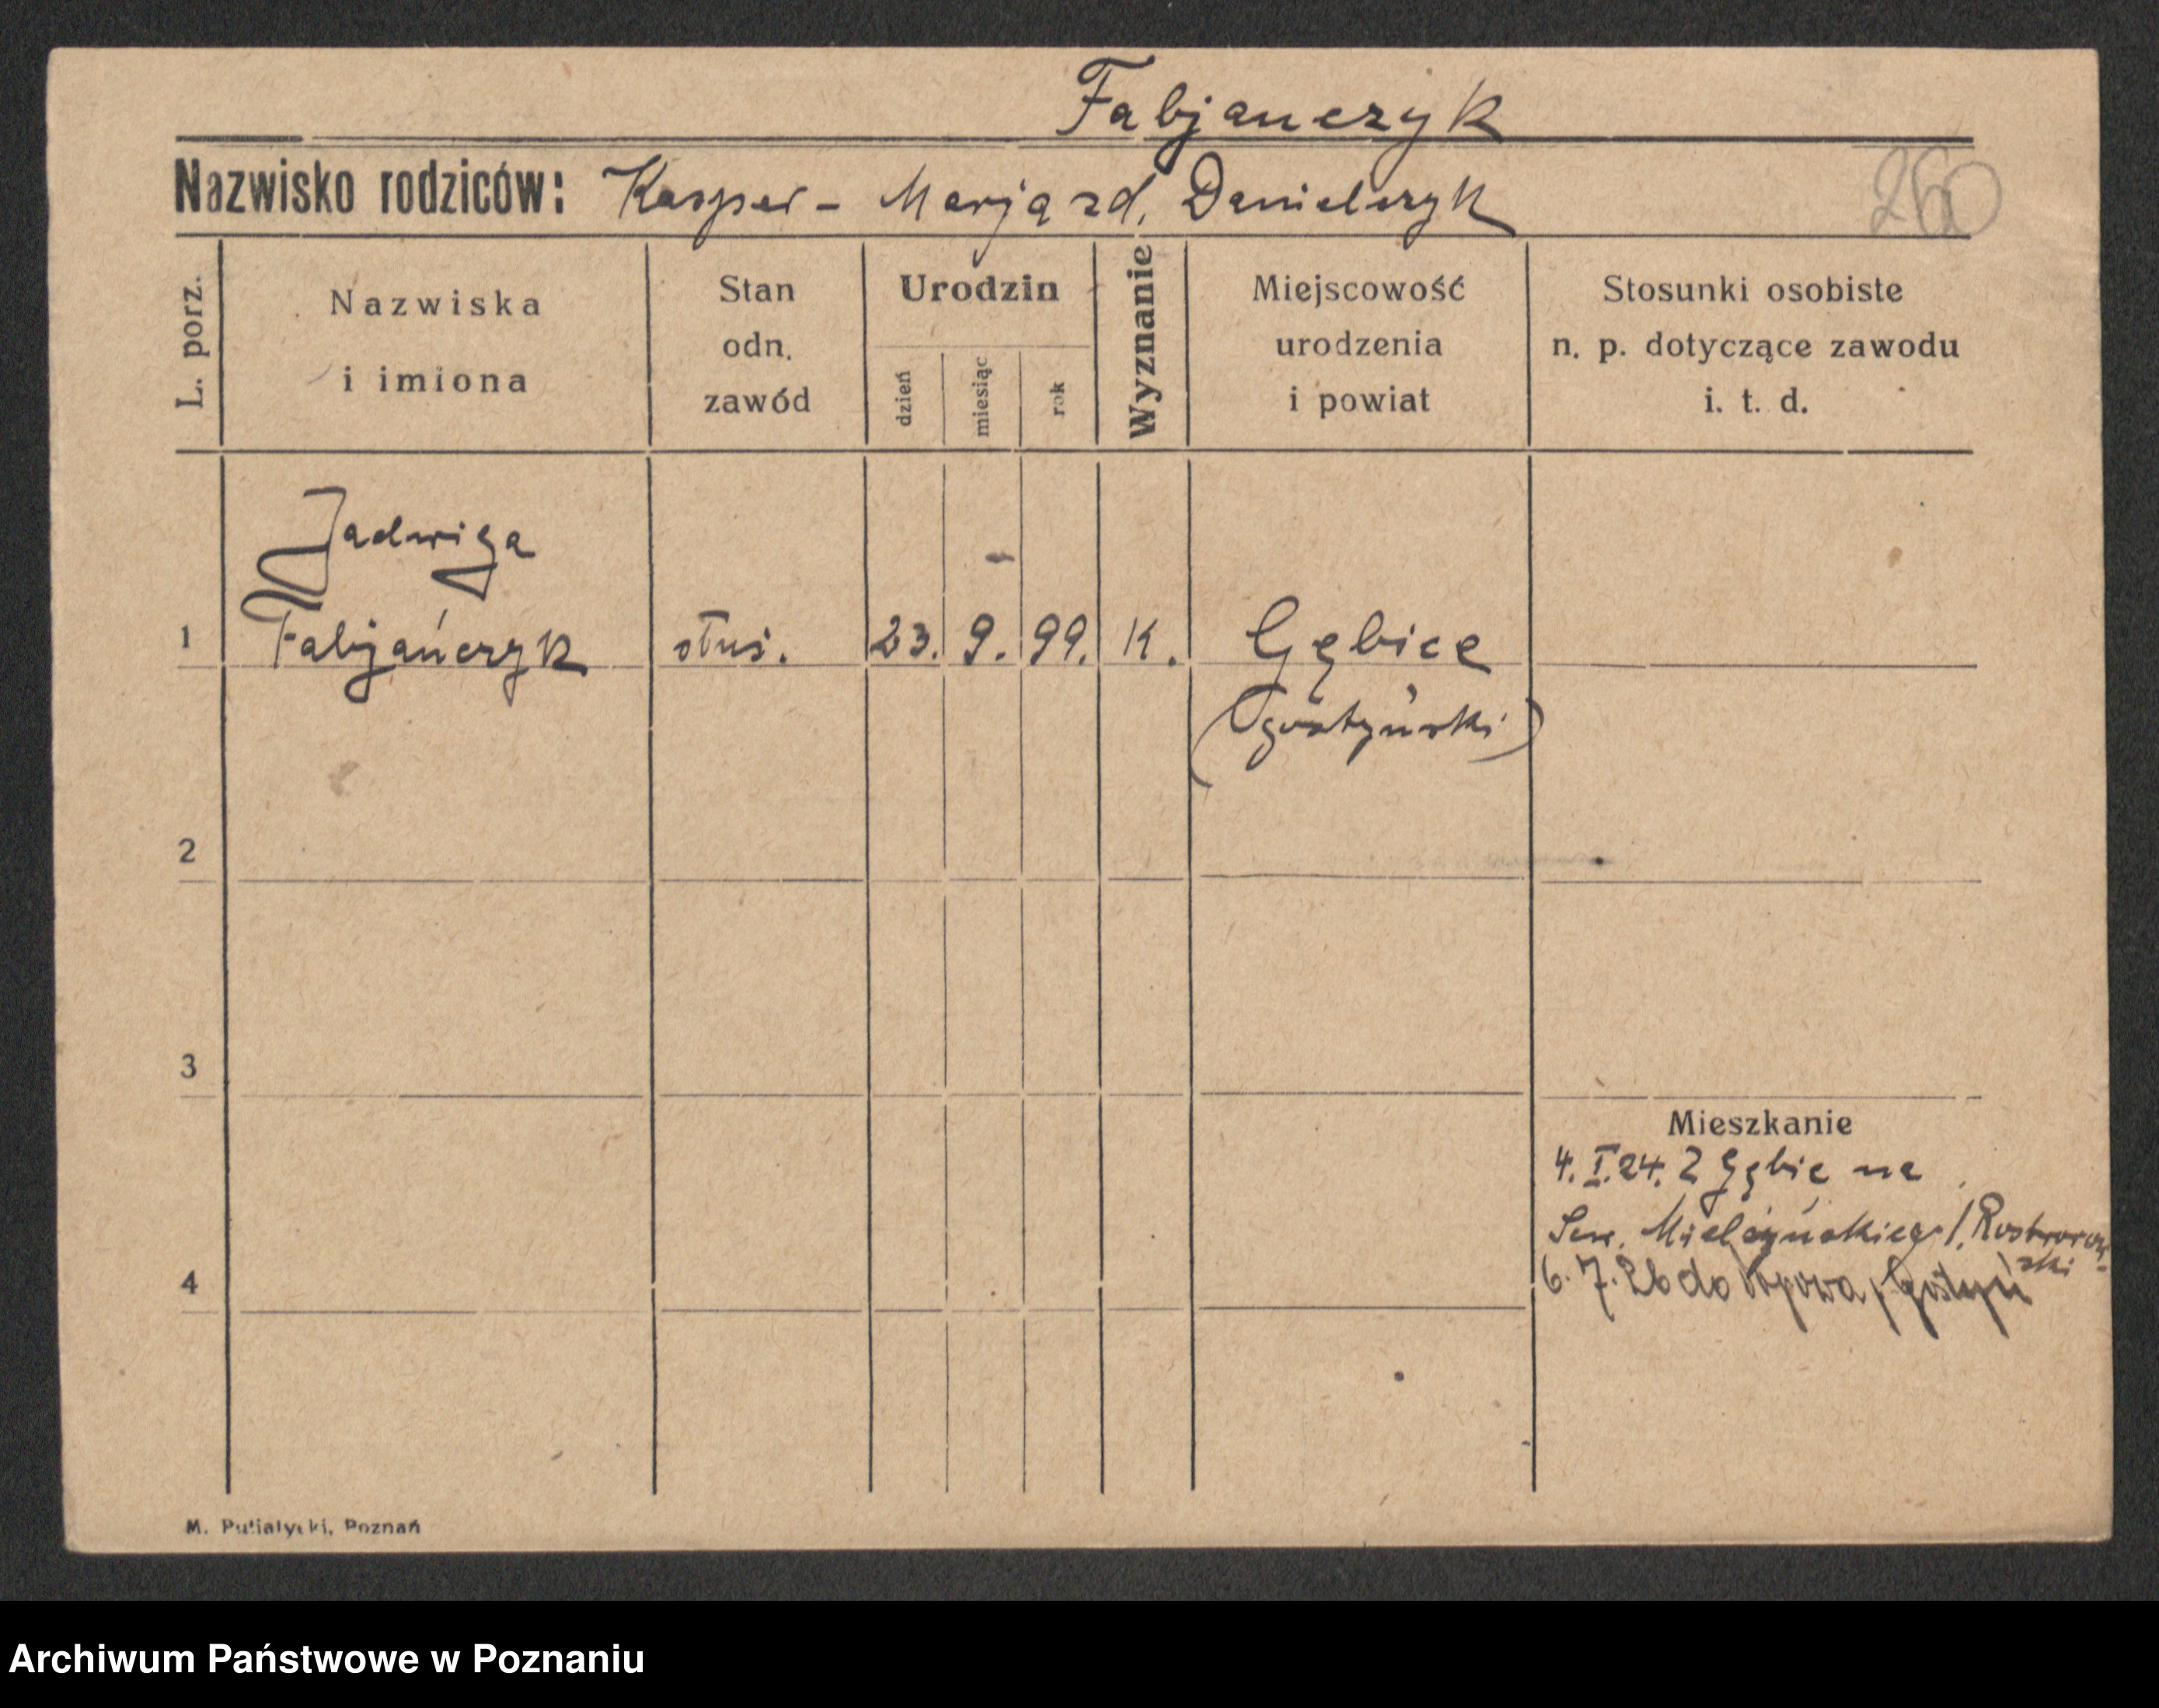 Fabjanczyk
Nazwisko rodziców: Kasper - Marja zd. Danielczyk
260
L. porz.
Nazwiska
i imiona
Stan
odn.
zawód
Urodzin
dzień
miesiąc
rok
Wyznanie
Miejscowość
urodzenia
i powiat
Stosunki osobiste
n. p. dotyczące zawodu
i. t. d.
Jadwiga
1 Fabjańczyk służ. 23. 9. 99. K. Gębice
(gostyński)
2
3
Mieszkanie
4. I. 24. Z Gębic na
Sew. Mielżyńskiego 1.
6. 7. 26 do Gostyń
4
M. Putiatycki, Poznań
Archiwum Państwowe w Poznaniu